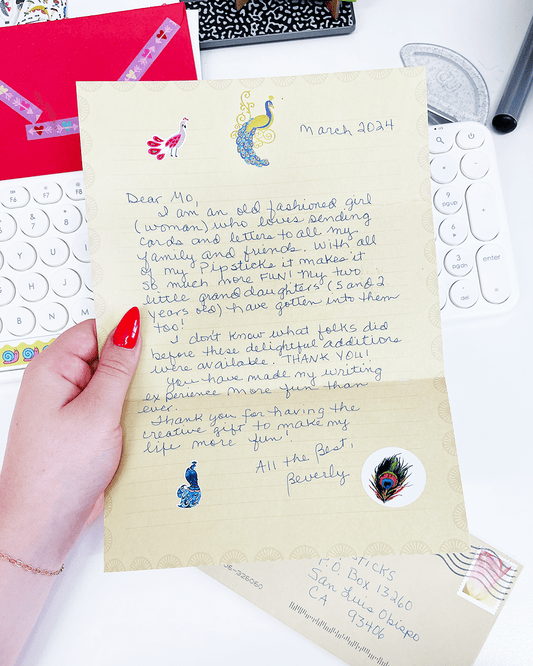 March 2024
Dear Mo,
I am an old fashioned girl
(woman) who loves sending
cards and letters to all my
family and friends. With all
of my Pipsticks it makes it
so much more FUN! My two
little granddaughters (5 and 2
years old) have gotten into them
too!
I don't know what folks did
before these delighful additions
were available. THANK YOU!
You have made my writing
experience more fun than
ever.
Thank you for having the
creative gift to make my
life more fun!
All the Best,
Beverly
STICKS
P.O. Box 13260
San Luis Obispo
CA 93406
F5
F6
F7
F8